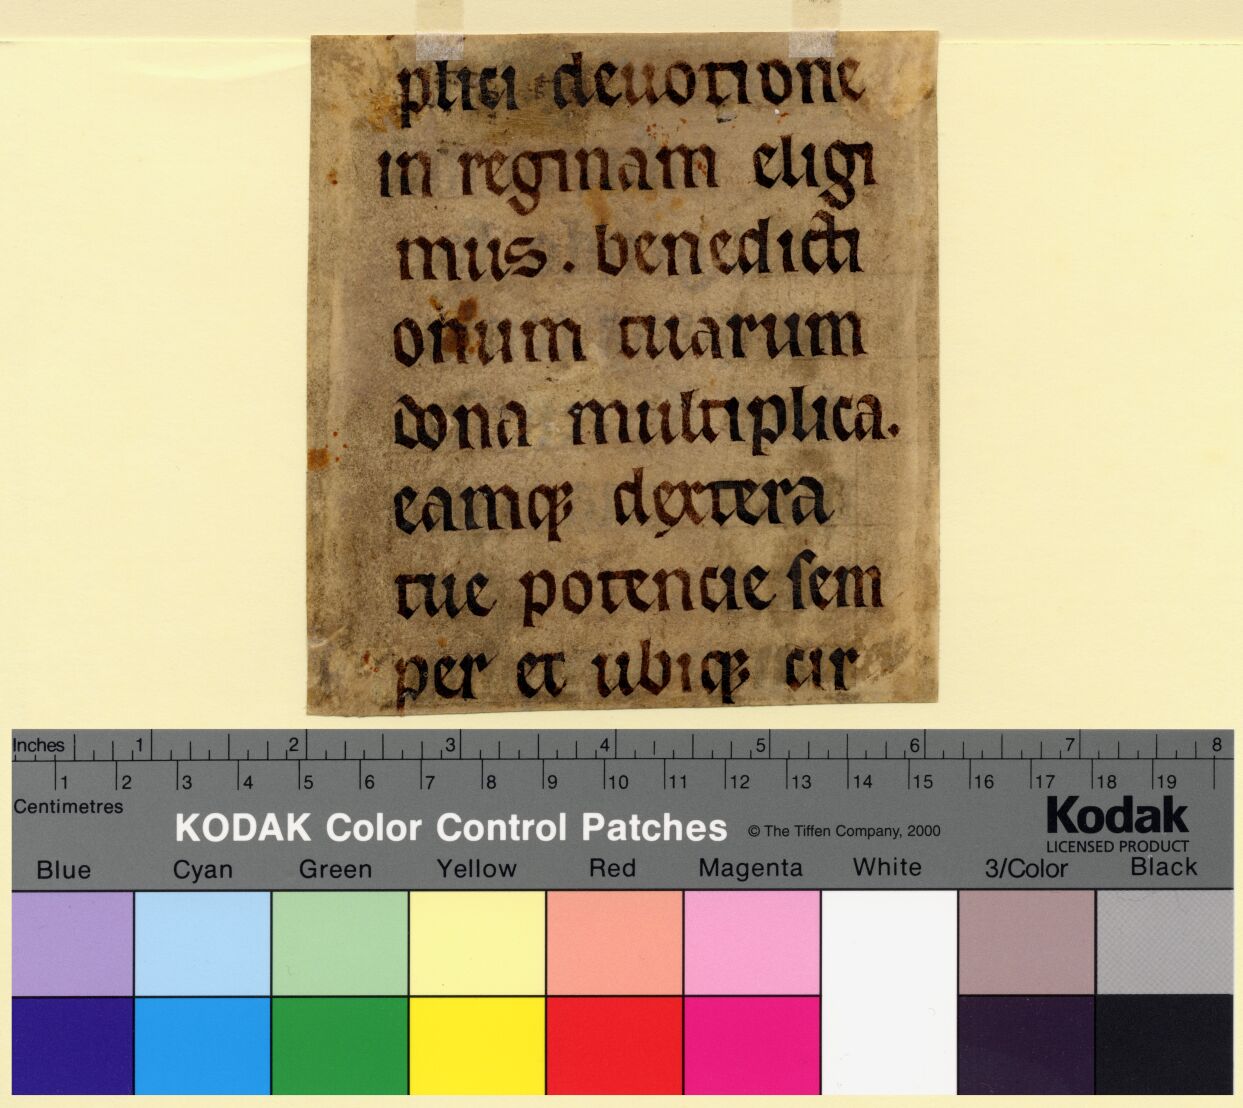 plici deuotione
in reginam eligi
mus. benedicti
onum tuarum
dona multiplica.
eamqꝫ dextera
tue potencie sem
per et ubiqꝫ cir
Inches 1 2 3 4 5 6 7 8
1 2 3 4 5 6 7 8 9 10 11 12 13 14 15 16 17 18 19
Centimetres
KODAK Color Control Patches © The Tiffen Company, 2000 Kodak
LICENSED PRODUCT
Blue Cyan Green Yellow Red Magenta White 3/Color Black